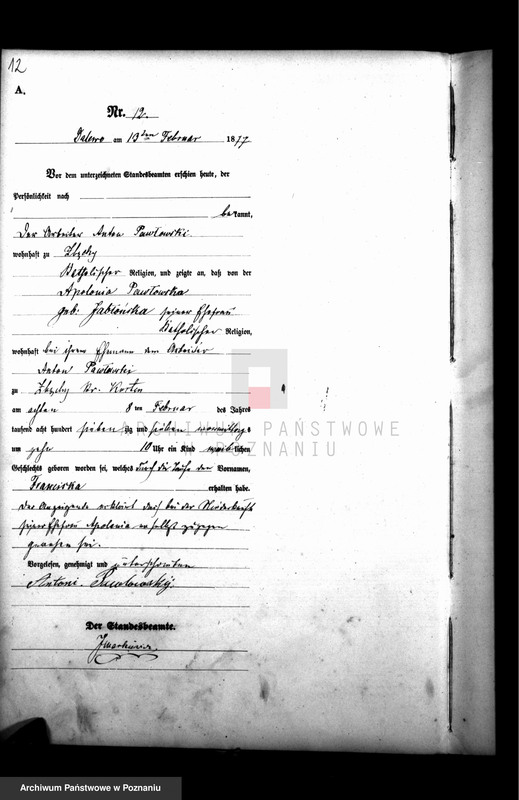 12
A.
Nr. 12.
Dalewo am 13ten Februar 1877
Vor dem unterzeichneten Standesbeamten erschien heute, der
Persönlichkeit nach
bekannt,
Der Arbeiter Anton Pawlowski
wohnhaft zu
Katholischer Religion, und zeigte an, daß von der
Apolonia Pawlowska
geb. Jablonska seiner Ehefrau
Katholischer Religion,
wohnhaft bei ihrem Ehemann dem Arbeiter
Anton Pawlowski
zu
am achten 8 ten Februar des Jahres
tausend acht hundert siebenzig und sieben
um zehn 10 Uhr ein Kind weiblichen
Geschlechts geboren worden sei, welches durch die Taufe den Vornamen,
Franciska erhalten habe.
Der Anzeigende erklärt daß bei der Niederkunft
seiner Ehefrau Apolonia er selbst zugegen
gewesen sei.
Vorgelesen, genehmigt und unterschrieben
Antoni Pawlowsky.
Der Standesbeamte.
ARCHIWUM PAŃSTWOWE
W POZNANIU
Archiwum Państwowe w Poznaniu